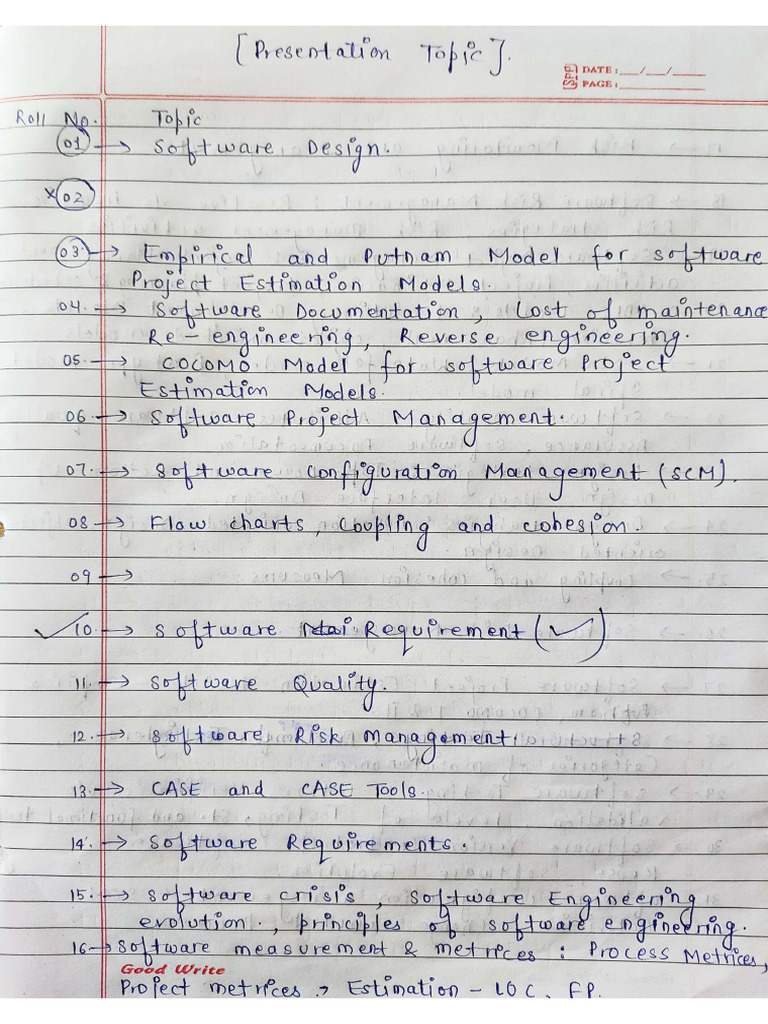 [Presentation Topic].
SPP DATE: __/__/____
PAGE: ________
Roll No. Topic
01 → Software Design.
x 02
03. → Empirical and Putnam Model for software
Project Estimation Models.
04. → Software Documentation, Cost of maintenance
Re-engineering, Reverse engineering.
05. → COCOMO Model for software Project
Estimation Models.
06. → Software Project Management.
07. → Software Configuration Management (SCM).
08 → Flow charts, Coupling and cohesion.
09 →
✓ 10. → Software Requirement (✓)
11. → Software Quality.
12. → Software Risk Management.
13. → CASE and CASE Tools.
14. → Software Requirements.
15. → Software crisis, Software Engineering
evolution., principles of software engineering.
16 → Software measurement & metrices : Process Metrices,
Good Write
Project metrices → Estimation - LOC, FP.